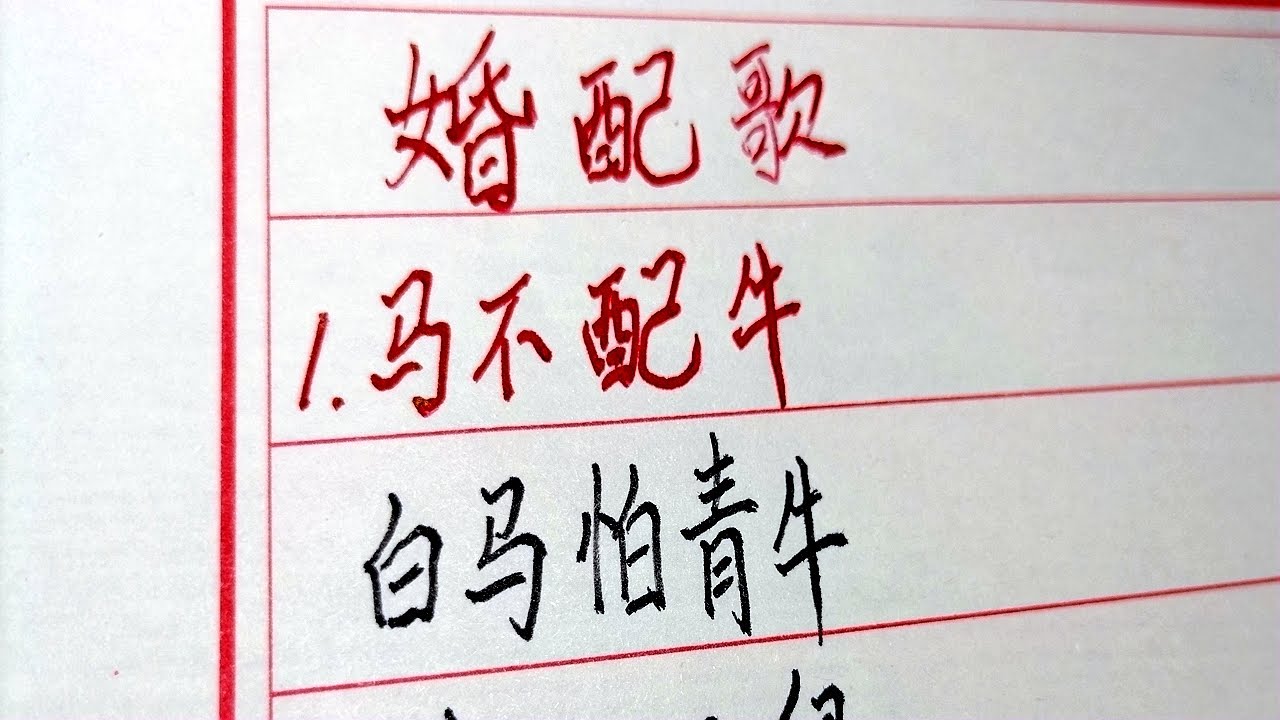 婚配歌
1.马不配牛
白马怕青牛